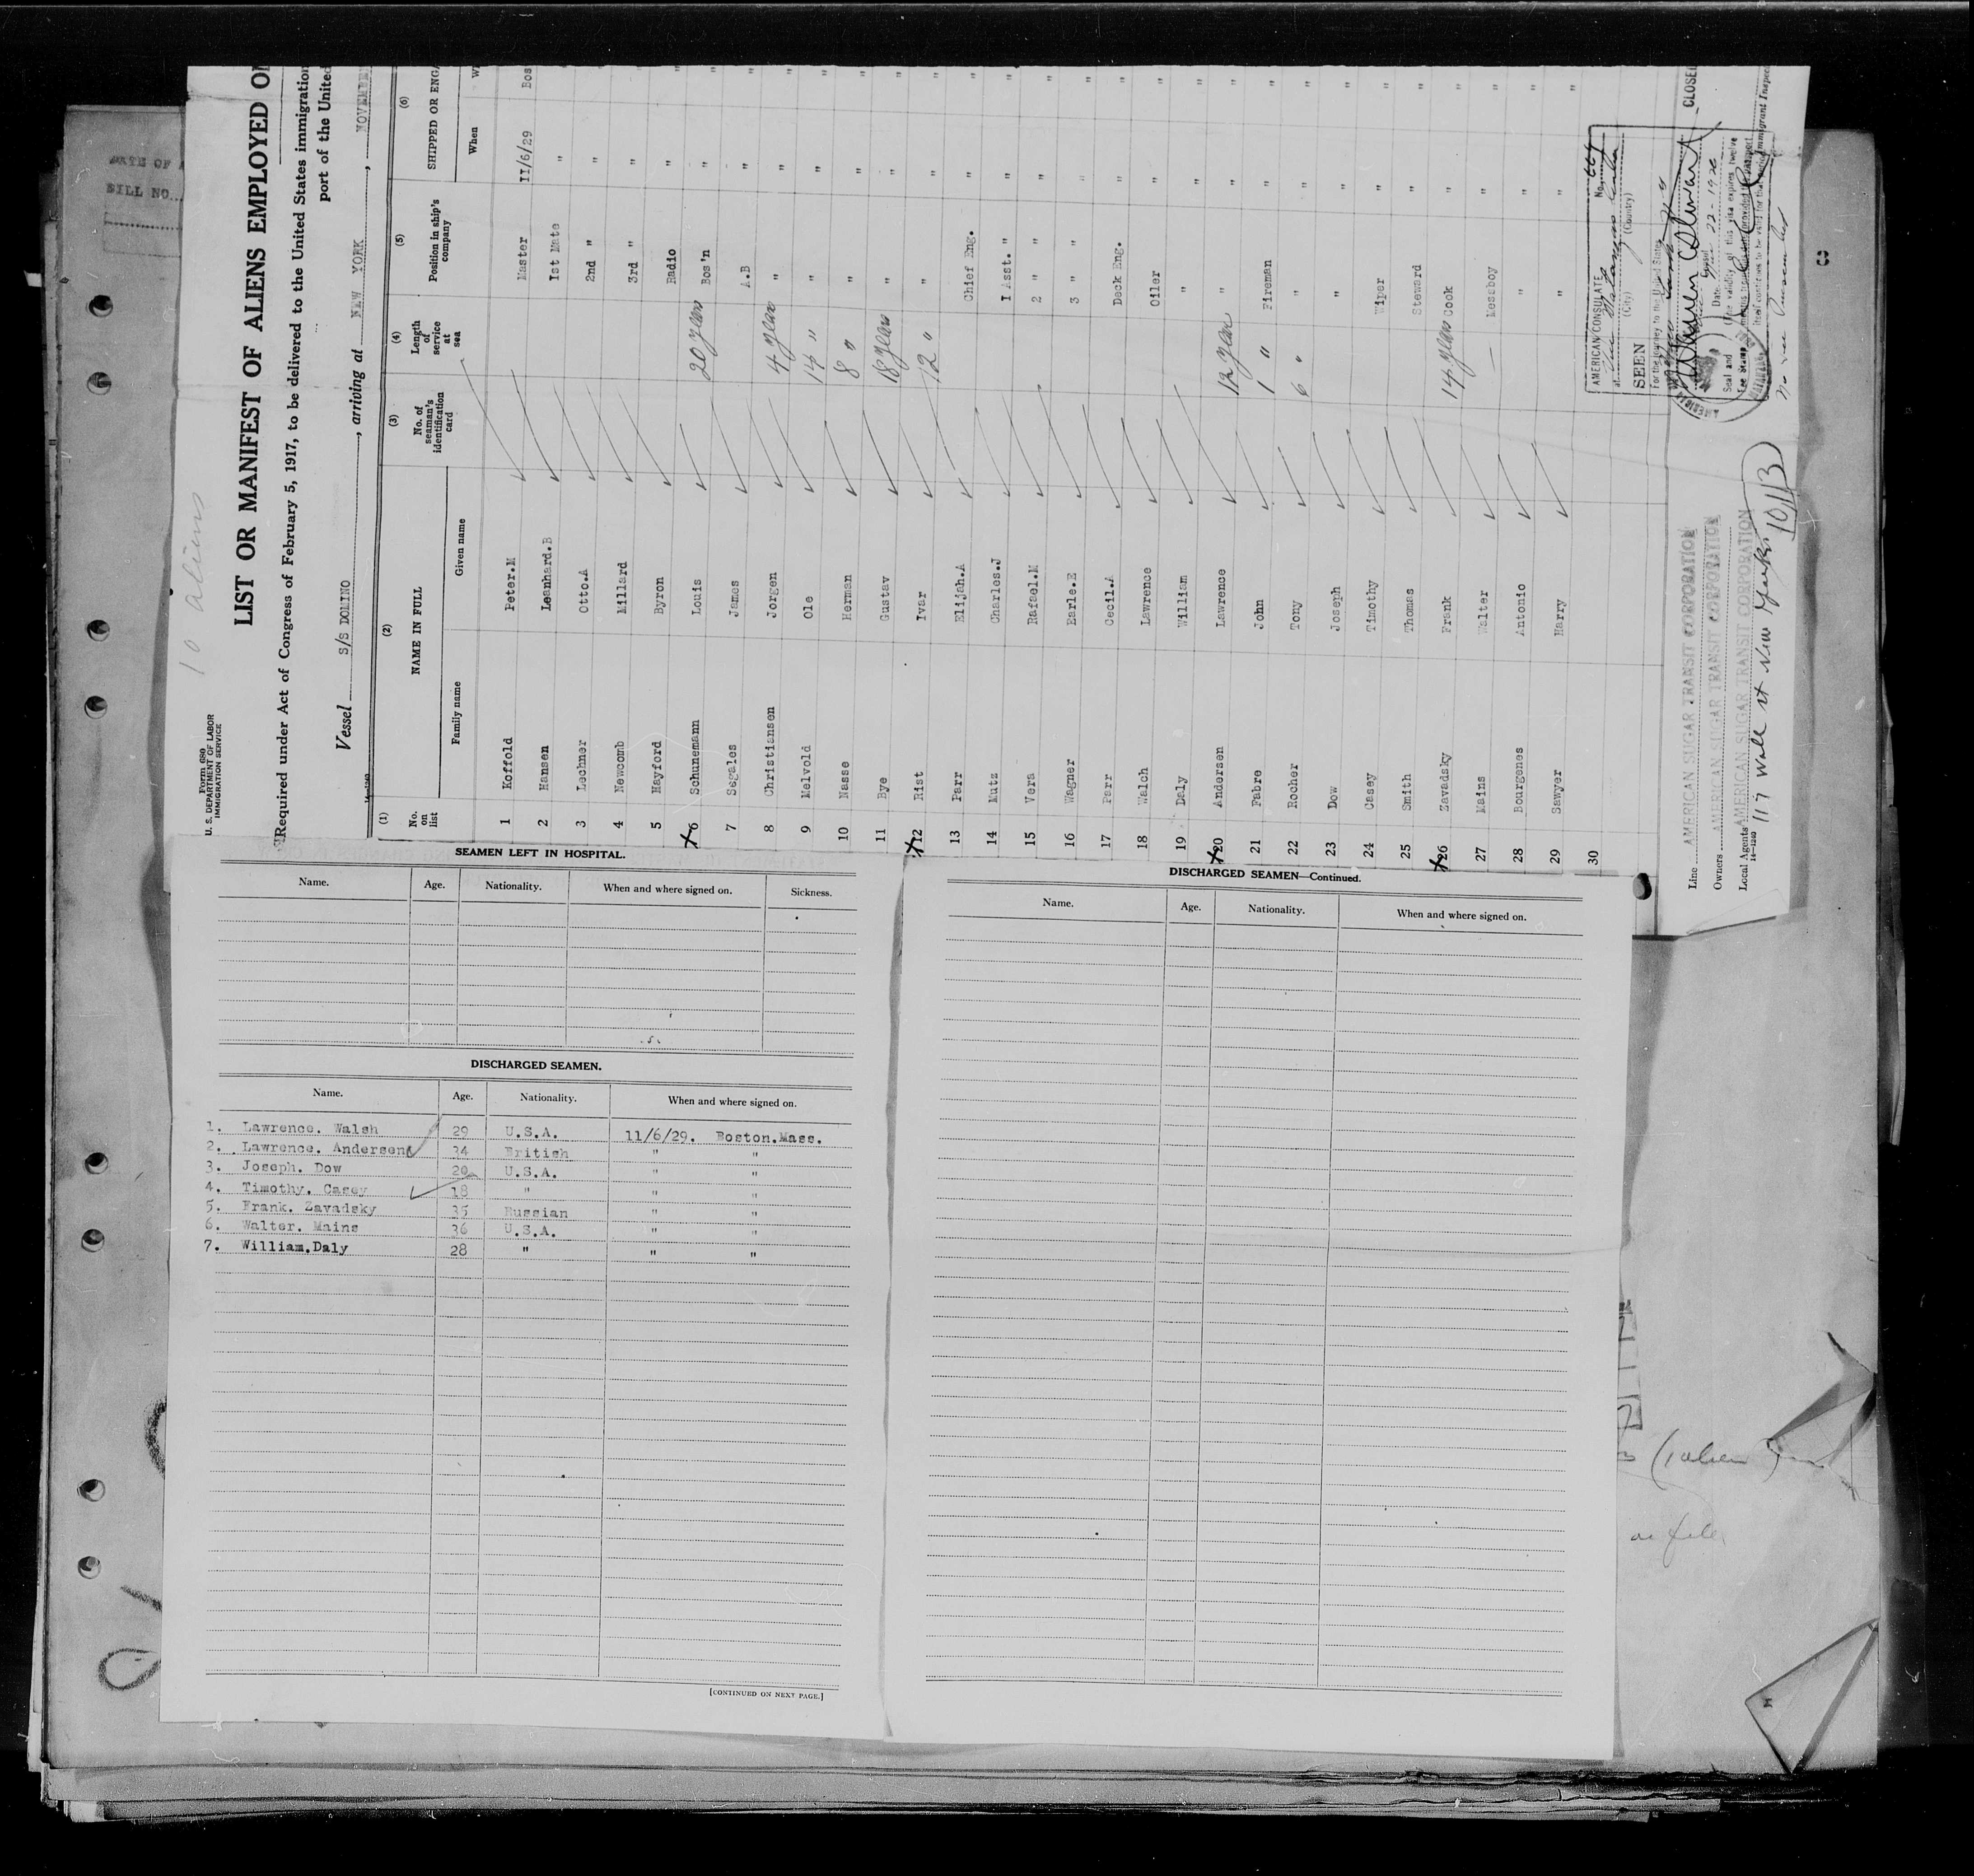 DATE OF A
BILL NO.
10 aliens
Form 680
U. S. DEPARTMENT OF LABOR
IMMIGRATION SERVICE
LIST OR MANIFEST OF ALIENS EMPLOYED ON
Required under Act of Congress of February 5, 1917, to be delivered to the United States immigration
port of the United
Vessel S/S DOMINO, arriving at NEW YORK, NOVEMBER
(1) (2) (3) (4) (5) (6)
No. on list NAME IN FULL No. of seaman's identification card Length of service at sea Position in ship's company SHIPPED OR ENGA
Family name Given name When W
1 Koffold Peter.M Master 11/6/29 Bos
2 Hansen Leanhard.B 1st Mate " "
3 Lechner Otto.A 2nd " " "
4 Newcomb Millard 3rd " " "
5 Hayford Byron Radio " "
6 Schunemann Louis 20 years Bos'n " "
7 Segales James A.B " "
8 Christiansen Jorgen 4 years " " "
9 Melvold Ole 14 " " " "
10 Nasse Herman 8 " " " "
11 Bye Gustav 18 years " " "
12 Rist Ivar 12 " " " "
13 Parr Elijah.A Chief Eng. " "
14 Mutz Charles.J 1 Asst. " " "
15 Vera Rafael.M 2 " " " "
16 Wagner Earle.E 3 " " "
17 Parr Cecil.A Deck Eng. " "
18 Walch Lawrence Oiler " "
19 Daly William " " "
20 Andersen Lawrence 12 years " " "
21 Fabre John 1 " Fireman " "
22 Rocher Tony 6 " " " "
23 Dow Joseph " " "
24 Casey Timothy Wiper " "
25 Smith Thomas Steward " "
26 Zavadsky Frank 14 years Cook " "
27 Mains Walter — Messboy " "
28 Bourgenes Antonio " " "
29 Sawyer Harry " " "
30
Line AMERICAN SUGAR TRANSIT CORPORATION
Owners AMERICAN SUGAR TRANSIT CORPORATION
Local Agents AMERICAN SUGAR TRANSIT CORPORATION
14—1240
117 Wall st New York
10/13
AMERICAN CONSULATE No.
at Matanzas Cuba
(City) (Country)
SEEN
For the journey to the United States
CLOSED
Seal and
Fee Stamp
(The validity of this visa expires twelve
Immigrant Inspec
SEAMEN LEFT IN HOSPITAL.
Name. Age. Nationality. When and where signed on. Sickness.
DISCHARGED SEAMEN.
Name. Age. Nationality. When and where signed on.
1. Lawrence. Walsh 29 U.S.A. 11/6/29. Boston.Mass.
2. Lawrence. Andersen 34 British " "
3. Joseph. Dow 20 U.S.A. " "
4. Timothy. Casey 18 " " "
5. Frank. Zavadsky 35 Russian " "
6. Walter. Mains 36 U.S.A. " "
7. William.Daly 28 " " "
[CONTINUED ON NEXT PAGE.]
DISCHARGED SEAMEN—Continued.
Name. Age. Nationality. When and where signed on.
on file